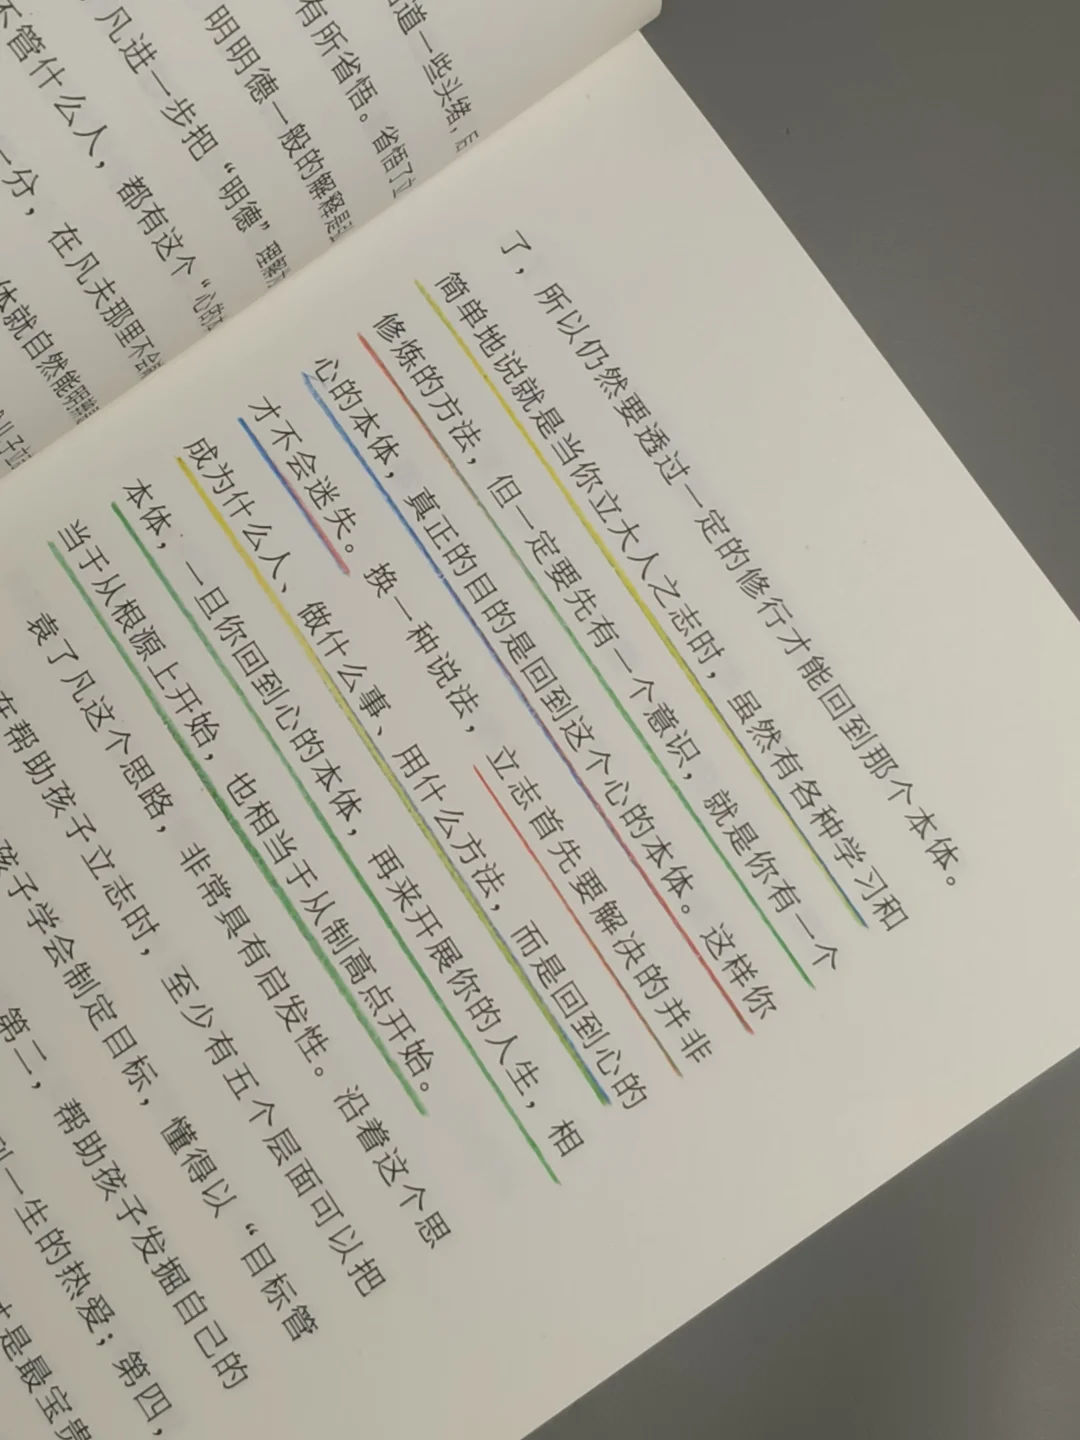 道一些头绪，
有所省悟。省悟了
明明德一般的解释是
凡进一步把“明德”理解
不管什么人，都有这个“心的
一分，在凡夫那里不会
体就自然能
了，所以仍然要透过一定的修行才能回到那个本体。
简单地说就是当你立大人之志时，虽然有各种学习和
修炼的方法，但一定要先有一个意识，就是你有一个
心的本体，真正的目的是回到这个心的本体。这样你
才不会迷失。换一种说法，立志首先要解决的并非
成为什么人、做什么事、用什么方法，而是回到心的
本体，一旦你回到心的本体，再来开展你的人生，相
当于从根源上开始，也相当于从制高点开始。
袁了凡这个思路，非常具有启发性。沿着这个思
在帮助孩子立志时，至少有五个层面可以把
孩子学会制定目标，懂得以“目标管
第二，帮助孩子发掘自己的
一生的热爱；第四，
是最宝贵